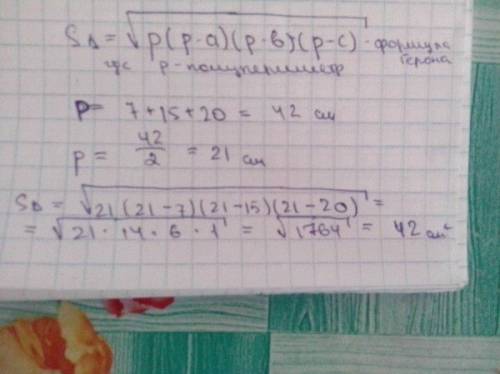 S△ = √p(p-a)(p-b)(p-c) - формула
где p - полупериметр Герона
P = 7+15+20 = 42 см
p = 42/2 = 21 см
S△ = √21(21-7)(21-15)(21-20) =
= √21·14·6·1 = √1764 = 42 см²